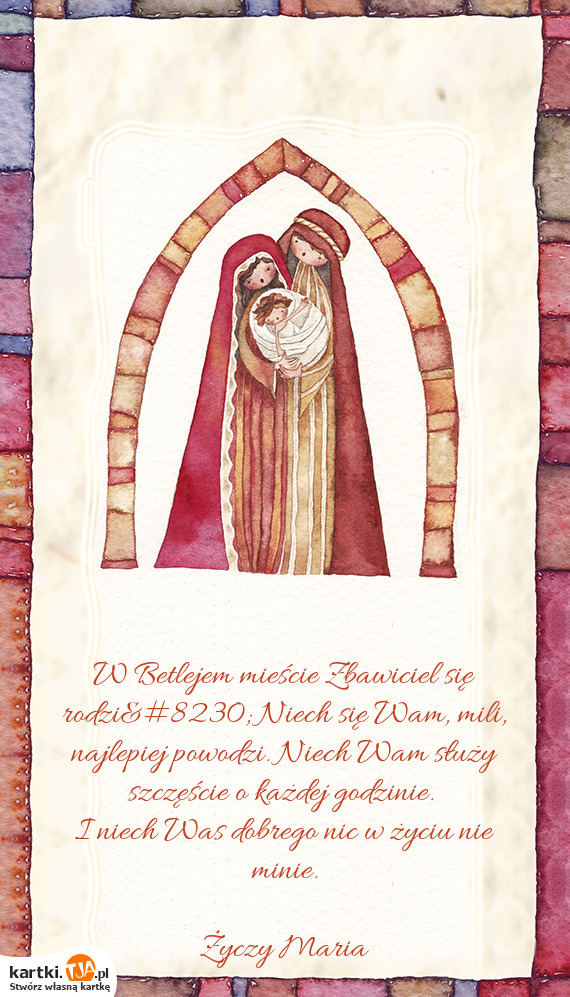 W Betlejem mieście Zbawiciel się
rodzi&#8230; Niech się Wam, mili,
najlepiej powodzi. Niech Wam służy
szczęście o każdej godzinie.
I niech Was dobrego nic w życiu nie
minie.
Życzy Maria
kartki.TJA.pl
Stwórz własną kartkę